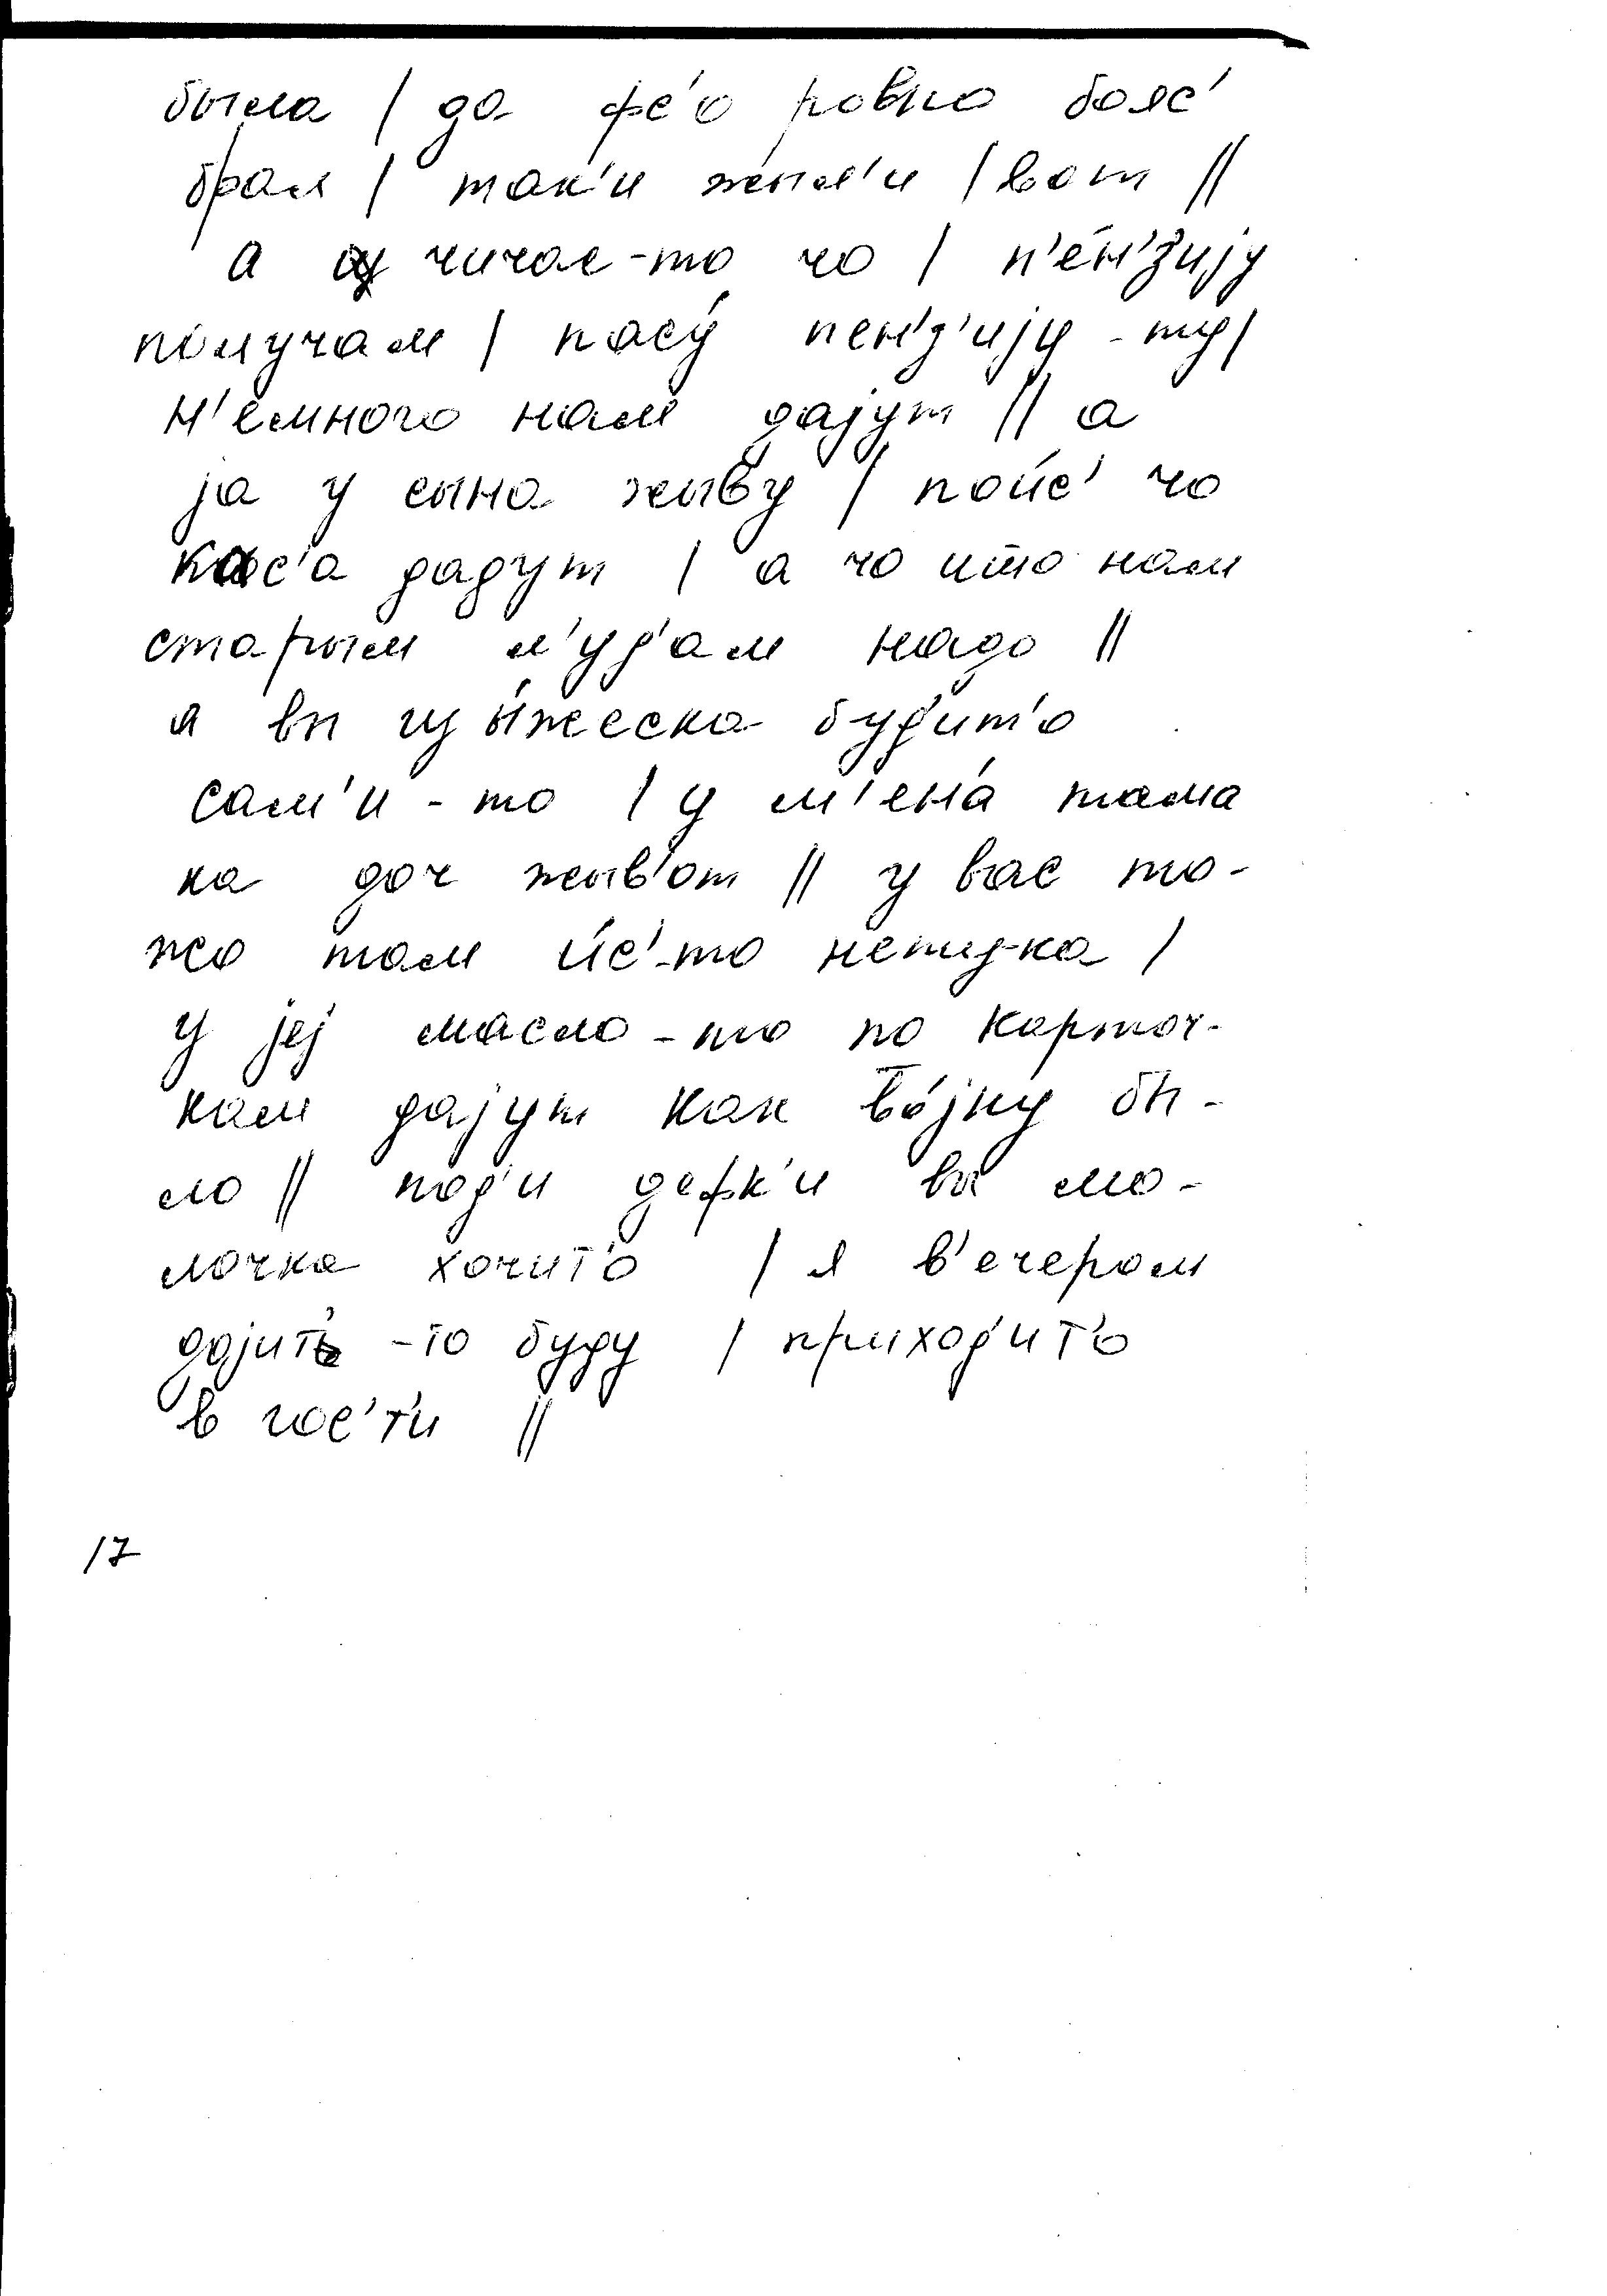 была / да фс'о ровно бояс'
брал / так'и жыл'и / вот //
а чичас-то чо / п'е́н'з'ију
получам / носу́ пен'з'ију - ту /
н'емного нам дајут // а
ја у сына жыву / пойе́с' чо
кас'а дадут / а чо што нам
старым л'уд'ам надо //
а вы цы́жеска буд'ит'о
сам'и - то / у м'ена́ тама
ка доч жыв'от // у вас то-
жо там йе́с'-то нету-ка /
у јеј масло - то по карточ-
кам дајут как во́јну бы-
ло // под'и дефк'и вы мо-
лочка хочит'о / я в'ечером
дојит' -то буду / приход'ит'о
в гос'т'и //
17